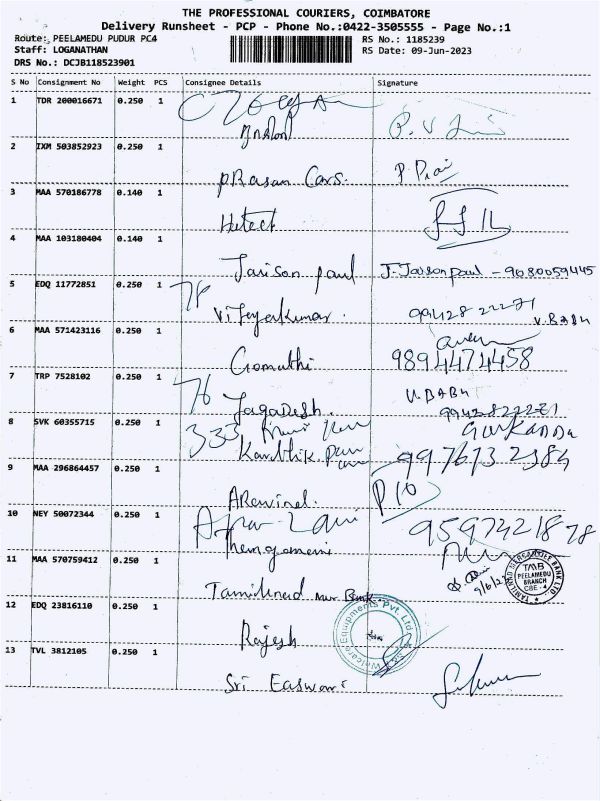 THE PROFESSIONAL COURIERS, COIMBATORE
Delivery Runsheet - PCP - Phone No.:0422-3505555 - Page No.:1
Route: PEELAMEDU PUDUR PC4 RS No.: 1185239
Staff: LOGANATHAN RS Date: 09-Jun-2023
DRS No.: DCJB118523901
S No Consignment No Weight PCS Consignee Details Signature
1 TDR 200016671 0.250 1
2 IXM 503852923 0.250 1
PRasan Cars. P.
3 MAA 570186778 0.140 1
Hitech
4 MAA 103180404 0.140 1
Jaison paul J. Jaison paul - 9080059445
5 EDQ 11772851 0.250 1 78
Vijeyakumar. 99428 22271
V.BABU
6 MAA 571423116 0.250 1
Gomathi 9894474458
7 TRP 7528102 0.250 1 76 V.BABU
Jagadesh. 9942822271
8 SVK 60355715 0.250 1 333
Karthik 9976132384
9 MAA 296864457 0.250 1
ARavind. P10
10 NEY 50072344 0.250 1 9597421878
11 MAA 570759412 0.250 1
TAMILNAD MERCANTILE BANK LTD
TMB
PEELAMEDU
BRANCH
CBE - 4
Tamilnad mer Bank 9/6/23
12 EDQ 23816110 0.250 1
Equipments Pvt. Ltd
Rajesh
13 TVL 3812105 0.250 1
Sri Easwari